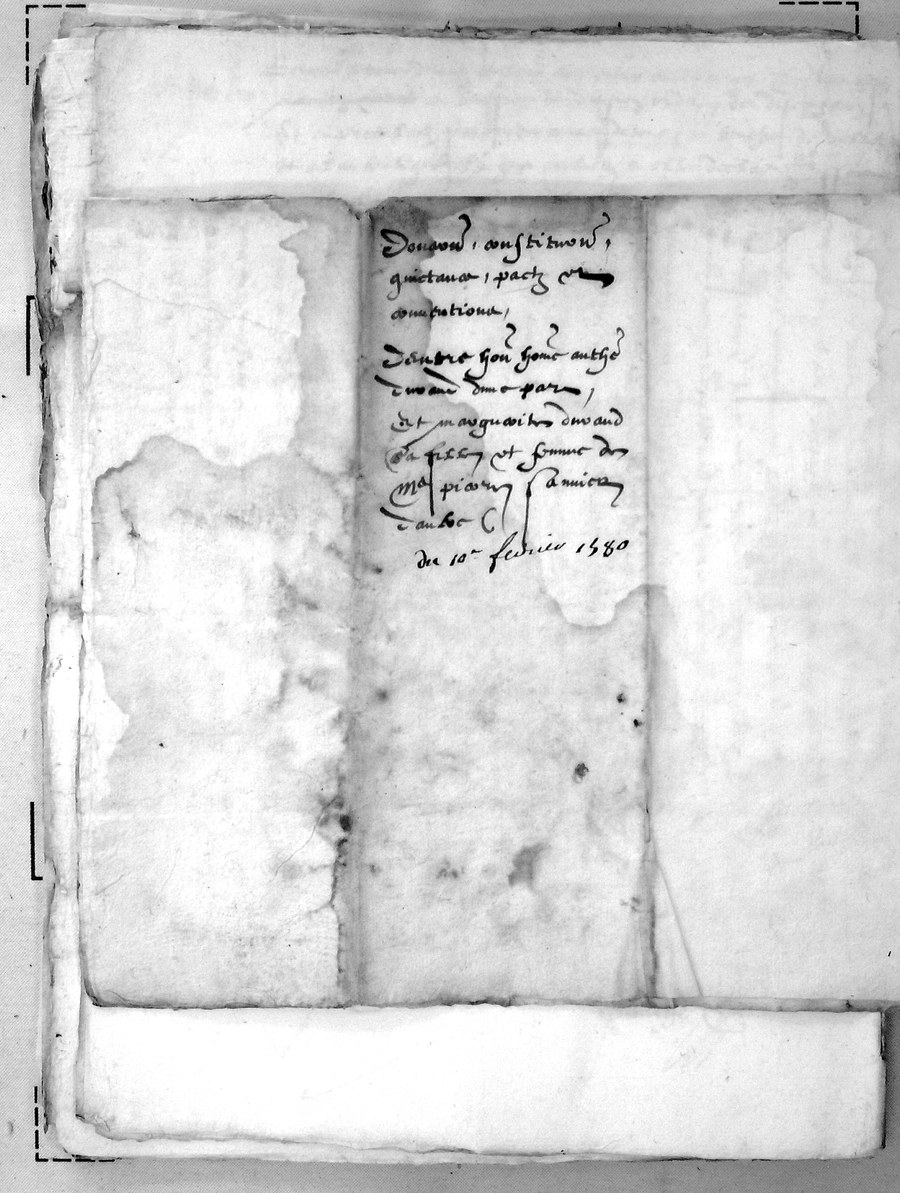 Donaon, constituon,
quictance, pactz et
conventions,
Dentre hon home anthe
durand dune part,
Et marguarite durand
sa fille et femme de
Me pierre
du 10e fevrier 1580